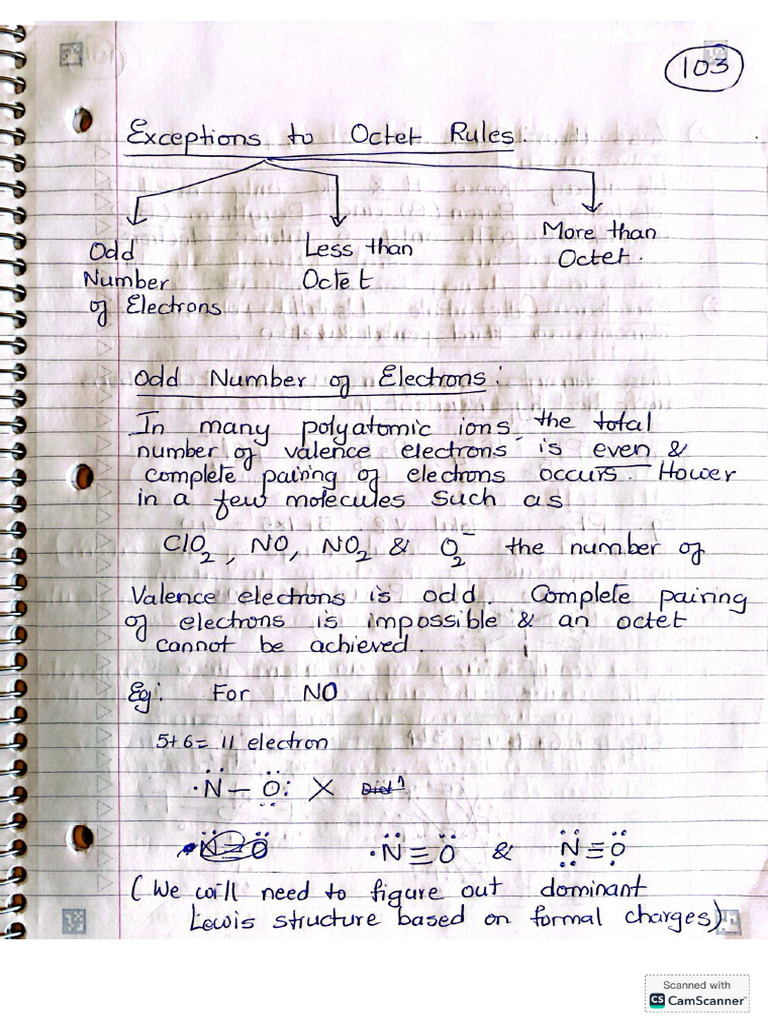 103
Exceptions to Octet Rules:
Odd
Number
of Electrons
Less than
Octet
More than
Octet.
Odd Number of Electrons:
In many polyatomic ions the total
number of valence electrons is even &
complete pairing of electrons occurs. Hower
in a few molecules such as
ClO₂, NO, NO₂ & O₂⁻ the number of
Valence electrons is odd. Complete pairing
of electrons is impossible & an octet
cannot be achieved.
Eg: For NO
5+6= 11 electron
·N̈ – Ö: X
·N̈ ≡ Ö & N̈ ≡ Ö
(We will need to figure out dominant
Lewis structure based on formal charges)
Scanned with
CS CamScanner